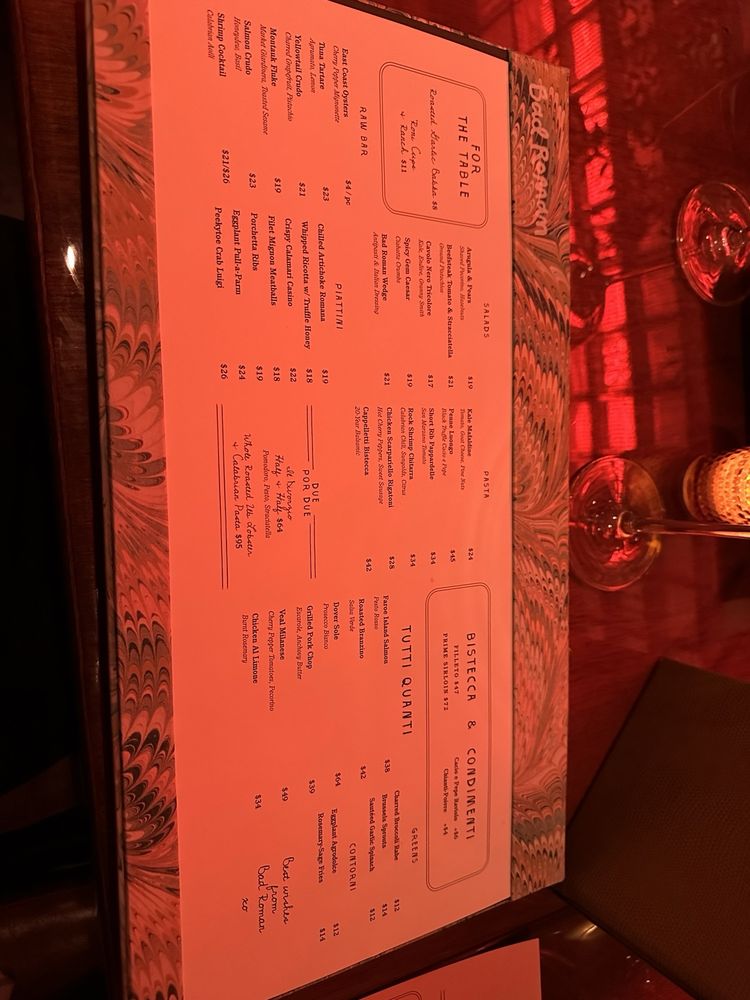 Bad Roman
FOR
THE TABLE
Roasted Garlic Babka $8
'Roni Cups
& Ranch $11
RAW BAR
East Coast Oysters $4/pc
Cherry Pepper Mignonette
Tuna Tartare $23
Agrumato, Lemon
Yellowtail Crudo $21
Charred Grapefruit, Pistachio
Montauk Fluke $19
Market Giardiniera, Toasted Sesame
Salmon Crudo $23
Honeydew, Basil
Shrimp Cocktail $21/$26
Calabrian Aioli
SALADS
Arugula & Pears $19
Shaved Pecorino, Hazelnuts
Beefsteak Tomato & Stracciatella $21
Ground Pistachios
Cavolo Nero Tricolore $17
Kale, Endive, Granny Smith
Spicy Gem Caesar $19
Ciabatta Crumbs
Bad Roman Wedge $21
Antipasti & Italian Dressing
PIATTINI
Chilled Artichoke Romana $19
Whipped Ricotta w/ Truffle Honey $18
Crispy Calamari Casino $22
Filet Mignon Meatballs $18
Porchetta Ribs $19
Eggplant Pull-a-Parm $24
Peekytoe Crab Luigi $26
PASTA
Kale Mafaldine $24
Tomato, Goat Cheese, Pine Nuts
Penne Luongo $45
Black Truffle Cacio e Pepe
Short Rib Pappardelle $34
San Marzano Tomato
Rock Shrimp Chitarra $34
Calabrian Chili, Sungolds, Citrus
Chicken Scarpariello Rigatoni $28
Hot Cherry Peppers, Sweet Sausage
Cappelletti Bistecca $42
20-Year Balsamic
DUE
POR DUE
Il Divorzio
Half & Half $64
Pomodoro, Pesto, Stracciatella
Whole Roasted 2lb Lobster
& Calabrian Pasta $95
BISTECCA & CONDIMENTI
FILLETO $47
PRIME SIRLOIN $72
Cacio e Pepe Raviolo +$6
Chianti-Poivre +$4
TUTTI QUANTI
Faroe Island Salmon $38
Pesto Rosso
Roasted Branzino $42
Salsa Verde
Dover Sole $64
Prosecco Bianco
Grilled Pork Chop $39
Escarole, Anchovy Butter
Veal Milanese $49
Cherry Pepper Tomatoes, Pecorino
Chicken Al Limone $34
Burnt Rosemary
GREENS
Charred Broccoli Rabe $12
Brussels Sprouts $14
Sautéed Garlic Spinach $12
CONTORNI
Eggplant Agrodolce $12
Rosemary-Sage Fries $14
Best wishes
from
Bad Roman
xo